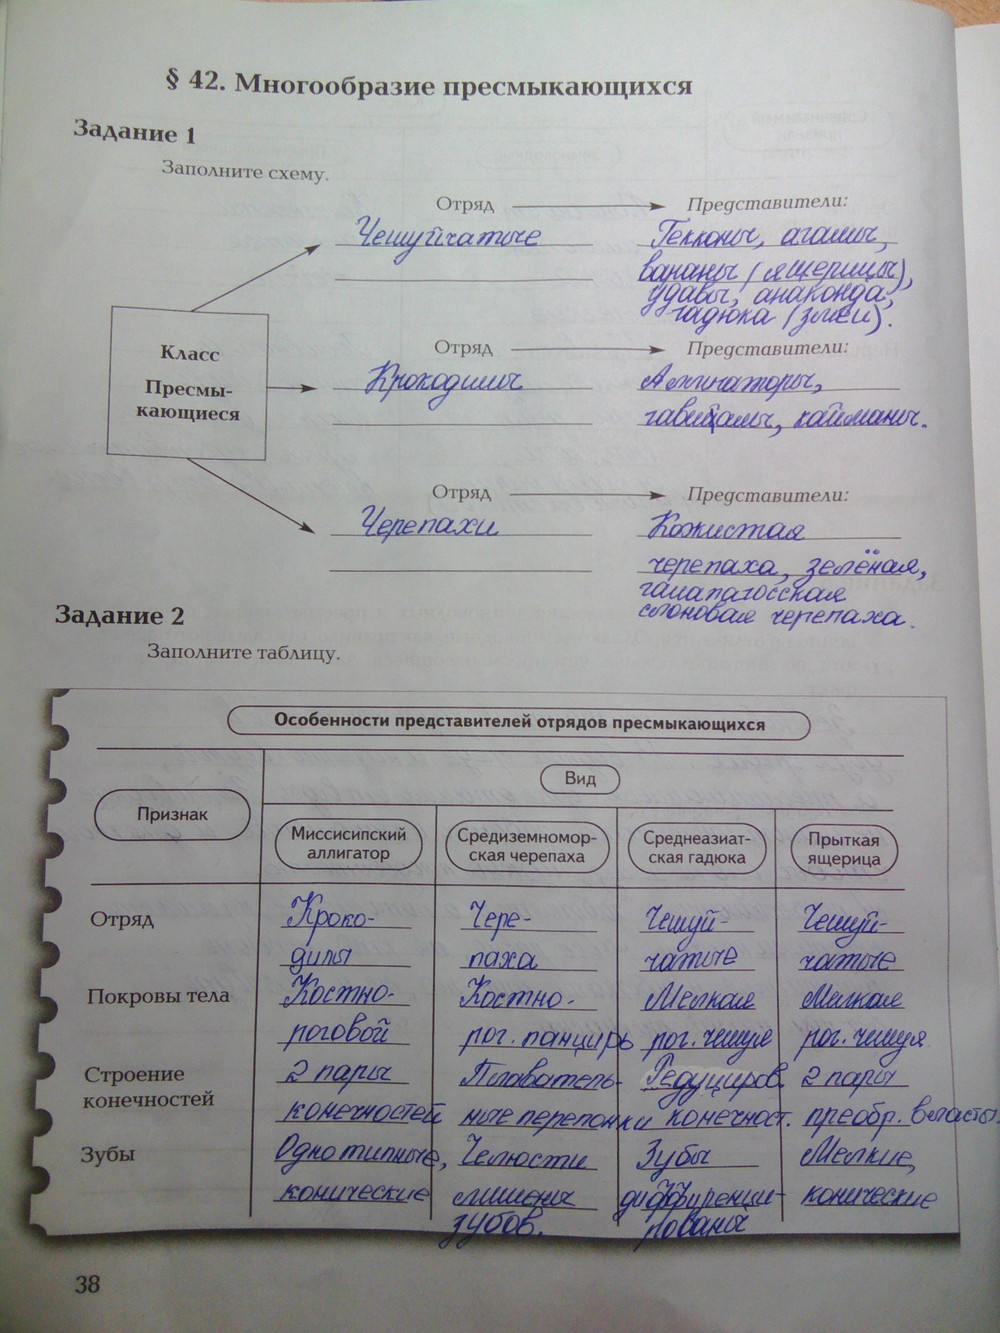 § 42. Многообразие пресмыкающихся
Задание 1
Заполните схему.
Отряд
Представители:
Чешуйчатые
Гекконы, агамы,
вараны (ящерицы),
удавы, анаконда,
гадюка (змеи).
Класс
Пресмы-
кающиеся
Отряд
Представители:
Крокодилы
Аллигаторы,
гавиалы, кайманы.
Отряд
Представители:
Черепахи
Кожистая
черепаха, зелёная,
галапагосская
слоновая черепаха.
Задание 2
Заполните таблицу.
Особенности представителей отрядов пресмыкающихся
Признак
Вид
Миссисипский
аллигатор
Средиземномор-
ская черепаха
Среднеазиат-
ская гадюка
Прыткая
ящерица
Отряд
Кроко-
дилы
Чере-
паха
Чешуй-
чатые
Чешуй-
чатые
Покровы тела
Костно-
роговой
Костно-
рог. панцирь
Мелкая
рог. чешуя
Мелкая
рог. чешуя
Строение
конечностей
2 пары
конечностей
Плаватель-
ные перепонки
Редуциров.
конечност.
2 пары
преобр. в ласты
Зубы
Однотипные,
конические
Челюсти
лишены
зубов.
Зубы
диффиренци-
рованы
Мелкие,
конические
38